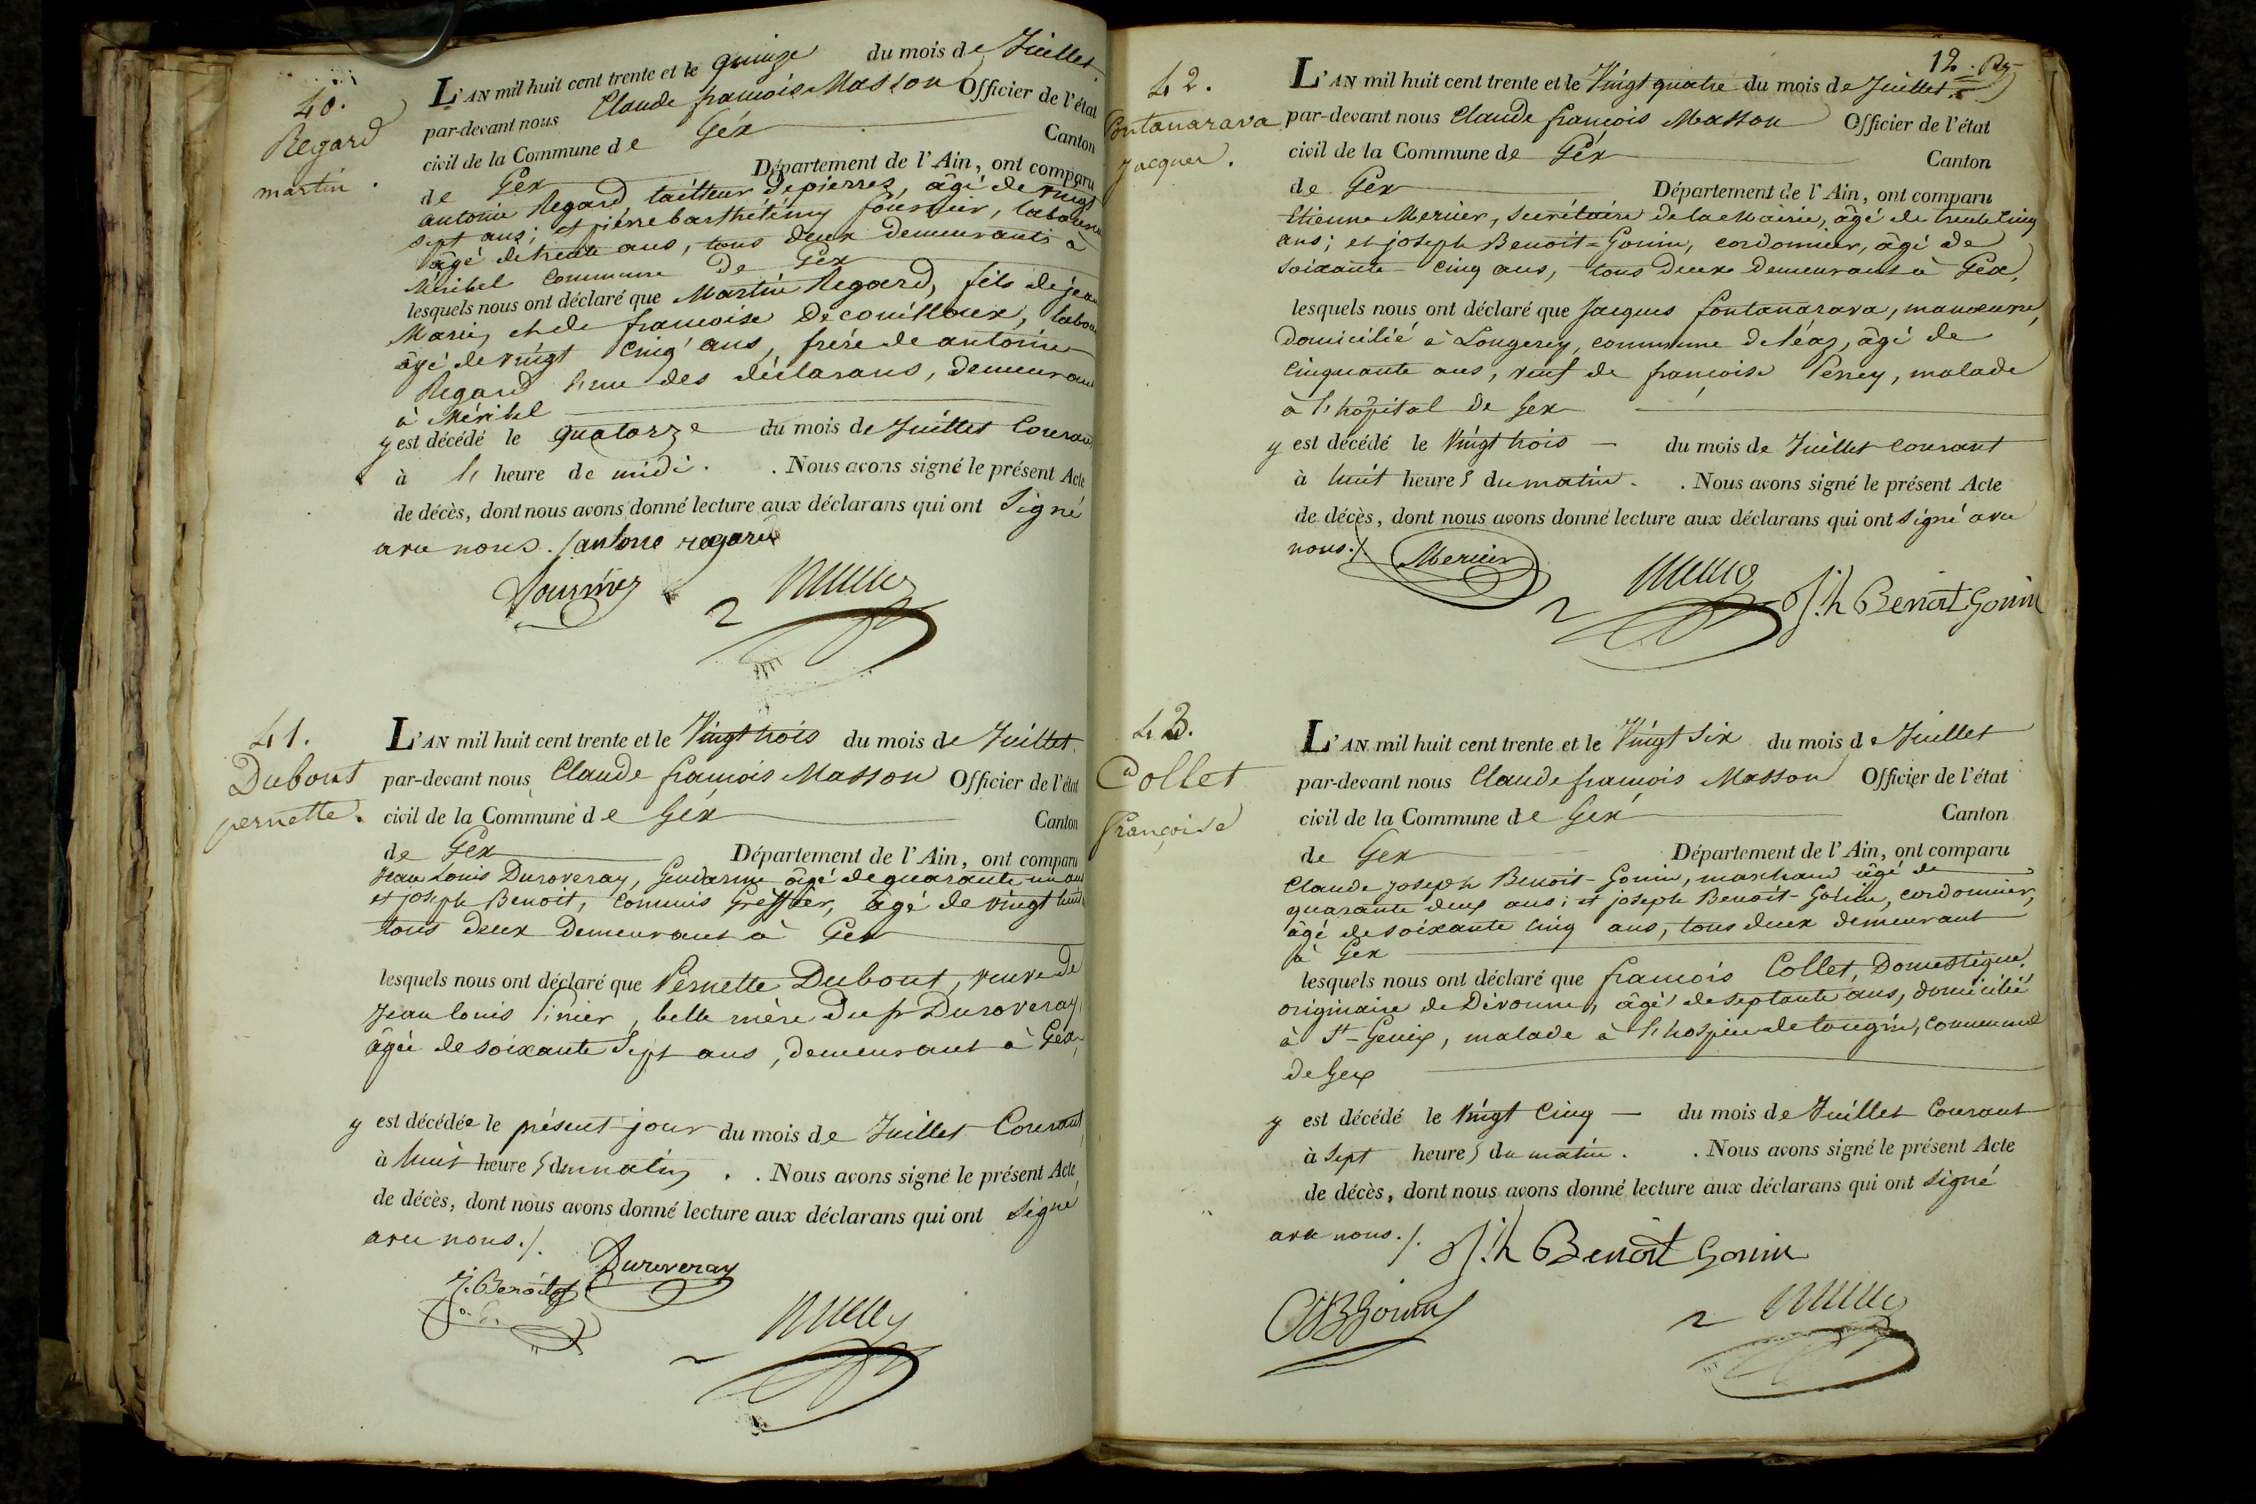 40.
Regard
martin.
L'AN mil huit cent trente et le quinze du mois de Juillet,
par-devant nous Claude françois Masson Officier de l'état
civil de la Commune de Géx Canton
de Gex Département de l'Ain, ont comparu
antoine Regard, tailleur de pierres, âgé de vingt
sept ans; et pierre barthélémy fournier, laboureur
âgé de trente ans, tous deux demeurants à
Méribel Commune de Gex
lesquels nous ont déclaré que Martin Regard, fils de jean
Marie, et de francoise Decouilloux, labou
âgé de vingt cinq ans, frére de antoine
Regard l'un des déclarans, demeurant
à Méribel
y est décédé le quatorze du mois de Juillet Courant
à l' heure de midi. . Nous avons signé le présent Acte
de décès, dont nous avons donné lecture aux déclarans qui ont signé
avec nous ./ antoine regard
fournier
41.
Dubout
pernette.
L'AN mil huit cent trente et le Vingt trois du mois de Juillet
par-devant nous Claude françois Masson Officier de l'état
civil de la Commune de Géx Canton
de Gex Département de l'Ain, ont comparu
Jean Louis Duroveray, Gendarme âgé de quarante un ans
et joseph Benoit, Commis Greffier, âgé de vingt huit
tous deux Demeurant à Gex
lesquels nous ont déclaré que Pernette Dubout, veuve de
Jean louis , belle mère du sr Duroveray,
âgée de soixante sept ans, demeurant à Géx,
y est décédée le présent jour du mois de Juillet Courant
à huit heures du matin . . Nous avons signé le présent Acte
de décès, dont nous avons donné lecture aux déclarans qui ont signé
avec nous ./.
Duroveray
J. Benoit
12.
42.
fontanarava
jacques.
L'AN mil huit cent trente et le Vingt quatre du mois de Juillet
par-devant nous Claude françois Masson Officier de l'état
civil de la Commune de Géx Canton
de Gex Département de l'Ain, ont comparu
Etienne Mercier, secrétaire de la Mairie, âgé de trente cinq
ans; et joseph Benoit=Gonin, cordonnier, âgé de
soixante cinq ans, tous deux Demeurant à Gex,
lesquels nous ont déclaré que Jacques fontanarava, manoeuvre,
Domicilié à Longerey, commune de léaz, âgé de
Cinquante ans, veuf de françoise Perrey, malade
à l'hôpital de Gex
y est décédé le Vingt trois — du mois de Juillet courant
à huit heures du matin. . Nous avons signé le présent Acte
de décès, dont nous avons donné lecture aux déclarans qui ont signé avec
nous ./.
Mercier
Jh Benoit Gonin
43.
Collet
françoise
L'AN mil huit cent trente et le Vingt six du mois de Juillet
par-devant nous Claude françois Masson Officier de l'état
civil de la Commune de Géx Canton
de Gex Département de l'Ain, ont comparu
Claude joseph Benoit-Gonin, marchand âgé de
quarante deux ans; et joseph Benoit-Gonin, cordonnier,
âgé de soixante cinq ans, tous deux demeurant
à Gex
lesquels nous ont déclaré que francois Collet, Domestique,
originaire de Divonne, âgé de septante ans, domicilié
à St-Genix, malade à l'hospice de tougin, commune
de Gex
y est décédé le Vingt Cinq — du mois de Juillet Courant
à sept heures du matin. . Nous avons signé le présent Acte
de décès, dont nous avons donné lecture aux déclarans qui ont signé
avec nous ./. Jh Benoit Gonin
CJBGonin